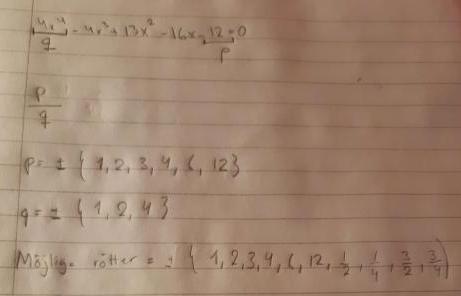 4x⁴ - 4x³ + 13x² - 16x - 12 = 0
q p
p
q
p = ± { 1, 2, 3, 4, 6, 12}
q = ± { 1, 2, 4 }
Möjliga rötter = ± { 1, 2, 3, 4, 6, 12, 1/2, 1/4, 3/2, 3/4 }